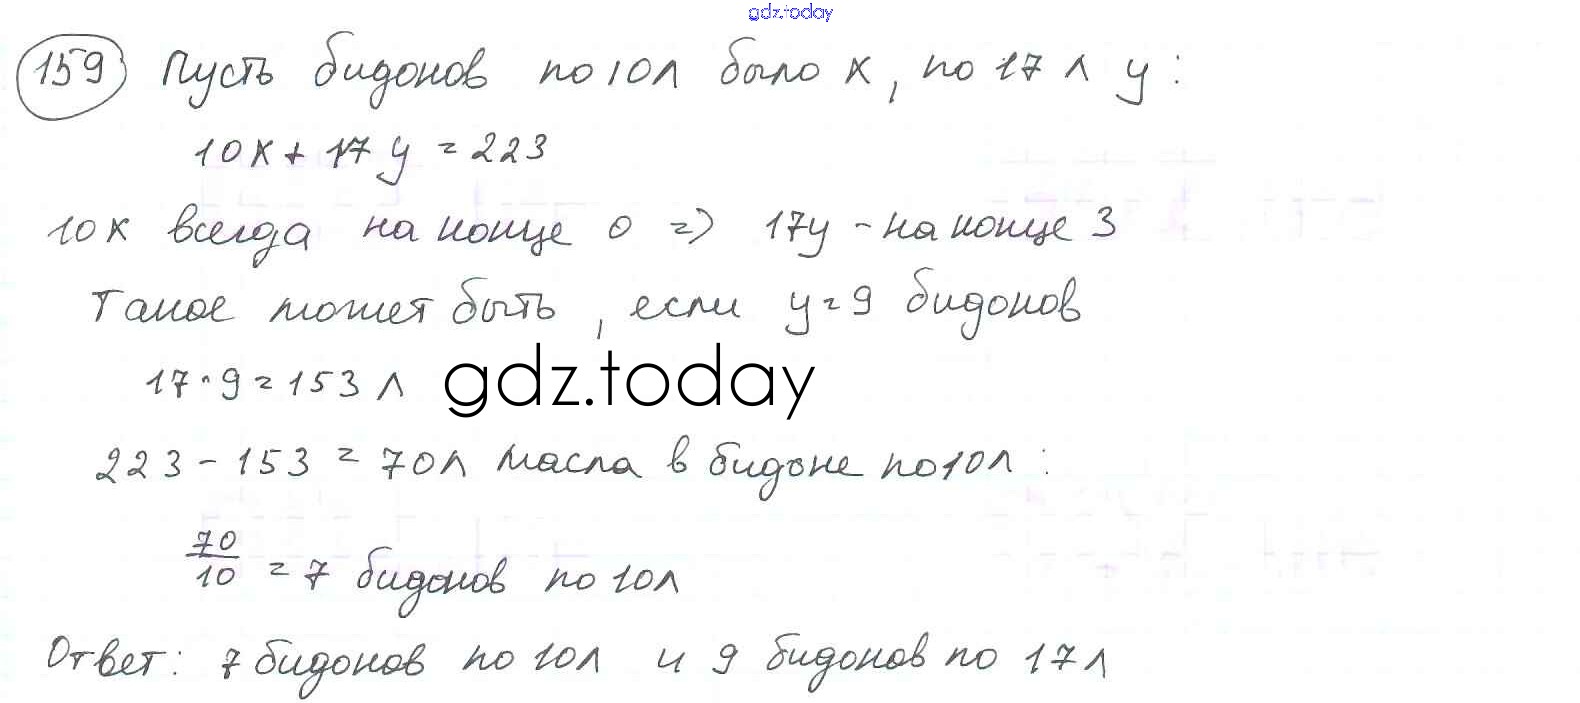 gdz.today
159 Пусть бидонов по 10л было x, по 17 л y:
10x + 17y = 223
10x всегда на конце 0 => 17y - на конце 3
Такое может быть, если y = 9 бидонов
17·9 = 153 л
gdz.today
223 - 153 = 70л масла в бидоне по 10л:
70/10 = 7 бидонов по 10л
Ответ: 7 бидонов по 10л и 9 бидонов по 17л